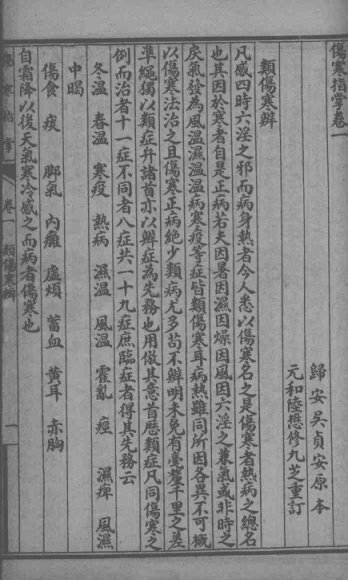 傷寒指掌卷一
歸安吳貞安原本
元和陸懋修九芝重訂
類傷寒辨
凡感四時六淫之邪而病身熱者今人悉以傷寒名之是傷寒者熱病之總名
也其因於寒者自是正病若夫因暑因濕因燥因風因六淫之兼氣或非時之
戾氣發為風溫濕溫溫病寒疫等症皆類傷寒耳病熱雖同所因各異不可概
以傷寒法治之且傷寒正病絕少類病尤多苟不辨明未免有毫釐千里之差
準繩獨以類症弁諸首亦以辨症為先務也用倣其意首歷類症凡同傷寒之
例而治者十一症不同者八症共一十九症庶臨症者得其先務云
冬溫 春溫 寒疫 熱病 濕溫 風溫 霍亂 痙 濕痺 風濕
中暍
傷食 痰 脚氣 內癰 虛煩 蓄血 黃耳 赤胸
自霜降以後天氣寒冷感之而病者傷寒也
傷寒指掌 卷一 類傷寒辨 一